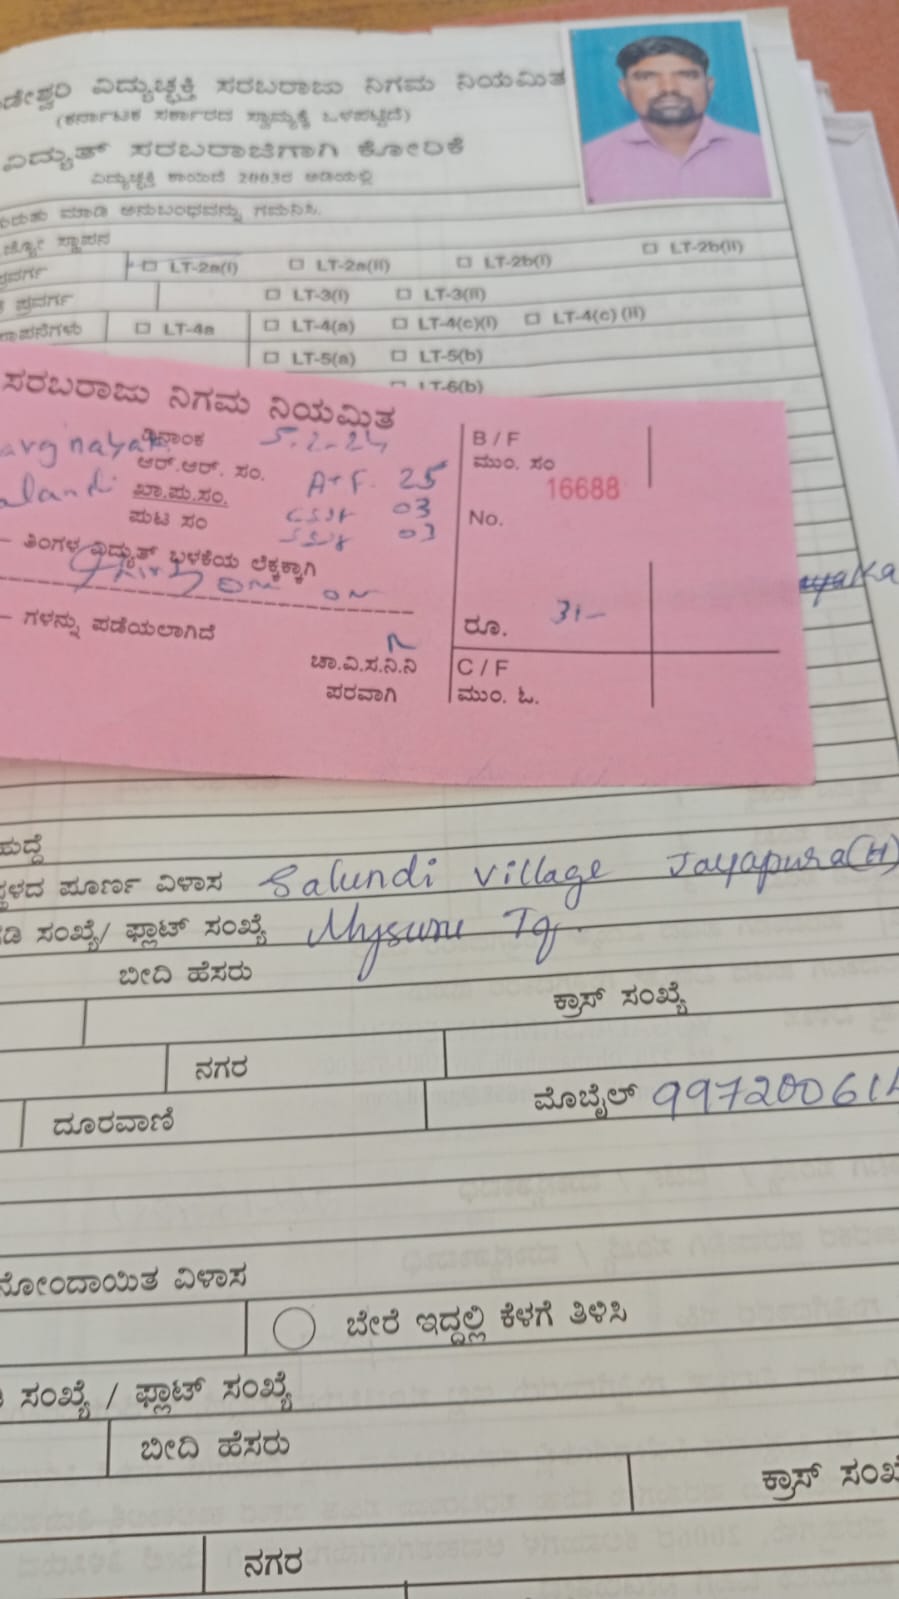 ವಿದ್ಯುಚ್ಛಕ್ತಿ ಸರಬರಾಜು ನಿಗಮ ನಿಯಮಿತ
(ಕರ್ನಾಟಕ ಸರ್ಕಾರದ ಸ್ವಾಮ್ಯಕ್ಕೆ ಒಳಪಟ್ಟಿದೆ)
ವಿದ್ಯುತ್ ಸರಬರಾಜಿಗಾಗಿ ಕೋರಿಕೆ
ವಿದ್ಯುಚ್ಛಕ್ತಿ ಕಾಯಿದೆ 2003ರ ಅಡಿಯಲ್ಲಿ
ಮಾಡಿ ಅನುಬಂಧವನ್ನು ಗಮನಿಸಿ.
LT-2a(i) LT-2a(ii) LT-2b(i) LT-2b(ii)
ಪ್ರವರ್ಗ LT-3(i) LT-3(ii)
LT-4a LT-4(a) LT-4(c)(i) LT-4(c) (ii)
LT-5(a) LT-5(b)
LT-6(b)
ಸರಬರಾಜು ನಿಗಮ ನಿಯಮಿತ
ದಿನಾಂಕ 5-2-24
ಆರ್.ಆರ್. ಸಂ. A+F. 25
ಖಾ.ಪು.ಸಂ. 03
ಪುಟ ಸಂ 03
– ತಿಂಗಳ ವಿದ್ಯುತ್ ಬಳಕೆಯ ಲೆಕ್ಕಕ್ಕಾಗಿ
– ಗಳನ್ನು ಪಡೆಯಲಾಗಿದೆ
ಚಾ.ವಿ.ಸ.ನಿ.ನಿ
ಪರವಾಗಿ
B / F
ಮುಂ. ಸಂ
16688
No.
ರೂ. 31-
C / F
ಮುಂ. ಓ.
ಹುದ್ದೆ
ಪೂರ್ಣ ವಿಳಾಸ Salundi Village Jayapura(H)
ಸಂಖ್ಯೆ/ ಫ್ಲಾಟ್ ಸಂಖ್ಯೆ Mysuru Tq.
ಬೀದಿ ಹೆಸರು
ಕ್ರಾಸ್ ಸಂಖ್ಯೆ
ನಗರ
ದೂರವಾಣಿ ಮೊಬೈಲ್ 997200614
ನೋಂದಾಯಿತ ವಿಳಾಸ
ಬೇರೆ ಇದ್ದಲ್ಲಿ ಕೆಳಗೆ ತಿಳಿಸಿ
ಸಂಖ್ಯೆ / ಫ್ಲಾಟ್ ಸಂಖ್ಯೆ
ಬೀದಿ ಹೆಸರು
ಕ್ರಾಸ್
ನಗರ